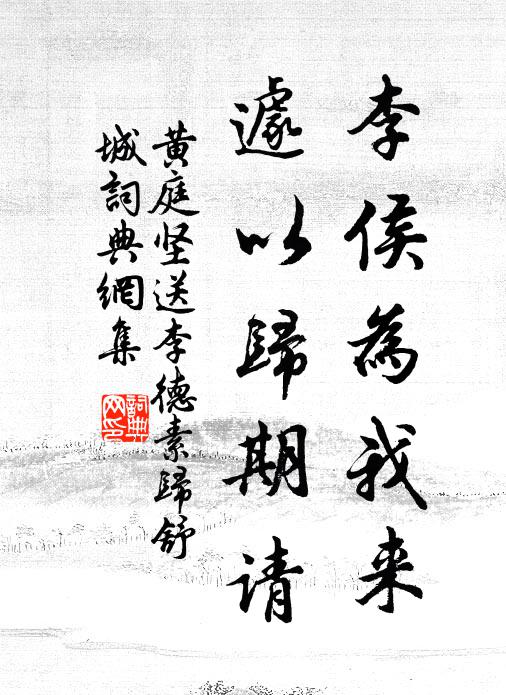 李侯為我来
遽以歸期请
黄庭坚送李德素歸舒
城詞典網集
詞典
网印